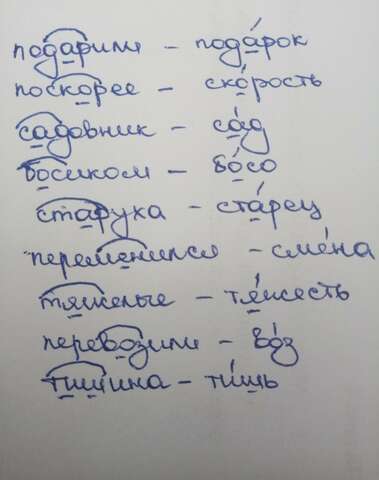 подарили – пода́рок
поскорее – ско́рость
садовник – са́д
босиком – бо́со
старуха – ста́рец
переменился – сме́на
тяжелые – тя́жесть
перевозили – во́з
тишина – ти́шь